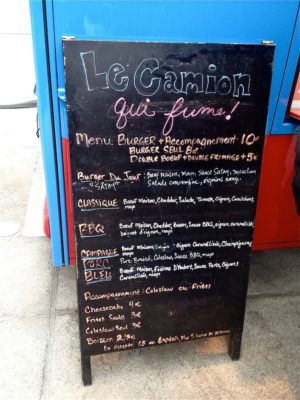 Le Camion
qui fume!
Menu Burger + Accompagnement 10€
Burger Seul 8€
Double Boeuf + Double Fromage + 5€
Burger Du Jour : Boeuf Maison, Mayo,
CLASSIQUE Boeuf Maison, Cheddar, Salade, Tomate, Oignon, Cornichons,
mayo
BBQ Boeuf Maison, Cheddar, Bacon, Sauce BBQ, oignon caramélisé,
mayo
CAMPAGNE Boeuf Maison, Oignon Caramélisés, Champignons,
mayo
Porc Braisé, Coleslaw, Sauce BBQ, mayo
BLEU Boeuf Maison, Fourme d'Ambert, Sauce Porto, Oignons
Caramélisés, mayo
Accompagnement : Coleslaw ou Frites
Cheesecake 4€
Frites Seules 3€
Coleslaw Seul 3€
Boisson 2/3€